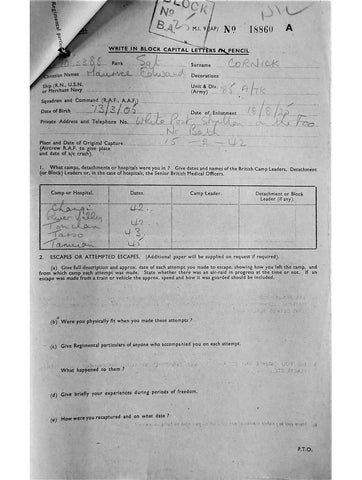 BLOCK
No
BA2
M.I. 9/JAP/ No 18860 A
WRITE IN BLOCK CAPITAL LETTERS IN PENCIL
Rank Sgt Surname CORNICK
Christian Names Maurice Edward Decorations
Ship (R.N., U.S.N. or Merchant Navy) Unit & Div. (Army) 85 A/TK
Squadron and Command (R.A.F., A.A.F.)
Date of Birth 13/3/05 Date of Enlistment
Private Address and Telephone No. White Post, Stratton on the Foo
Nr Bath
Place and Date of Original Capture 15-2-42
(Aircrew R.A.F. to give place and date of a/c crash).
1. What camps, detachments or hospitals were you in ? Give dates and names of the British Camp Leaders, Detachment
(or Block) Leaders or, in the case of hospitals, the Senior British Medical Officers.
Camp or Hospital. Dates. Camp Leader. Detachment or Block Leader (if any).
Changi 42
River Valley
Tonchan 42
Tarso 43
Tamuan
2. ESCAPES OR ATTEMPTED ESCAPES. (Additional paper will be supplied on request if required).
(a) Give full description and approx. date of each attempt you made to escape, showing how you left the camp, and
from which camp each attempt was made. State whether there was an air-raid in progress at the time or not. If an
escape was made from a train or vehicle the approx. speed and how it was guarded should be included.
(b) Were you physically fit when you made these attempts ?
(c) Give Regimental particulars of anyone who accompanied you on each attempt.
What happened to them ?
(d) Give briefly your experiences during periods of freedom.
(e) How were you recaptured and on what date ?
P.T.O.